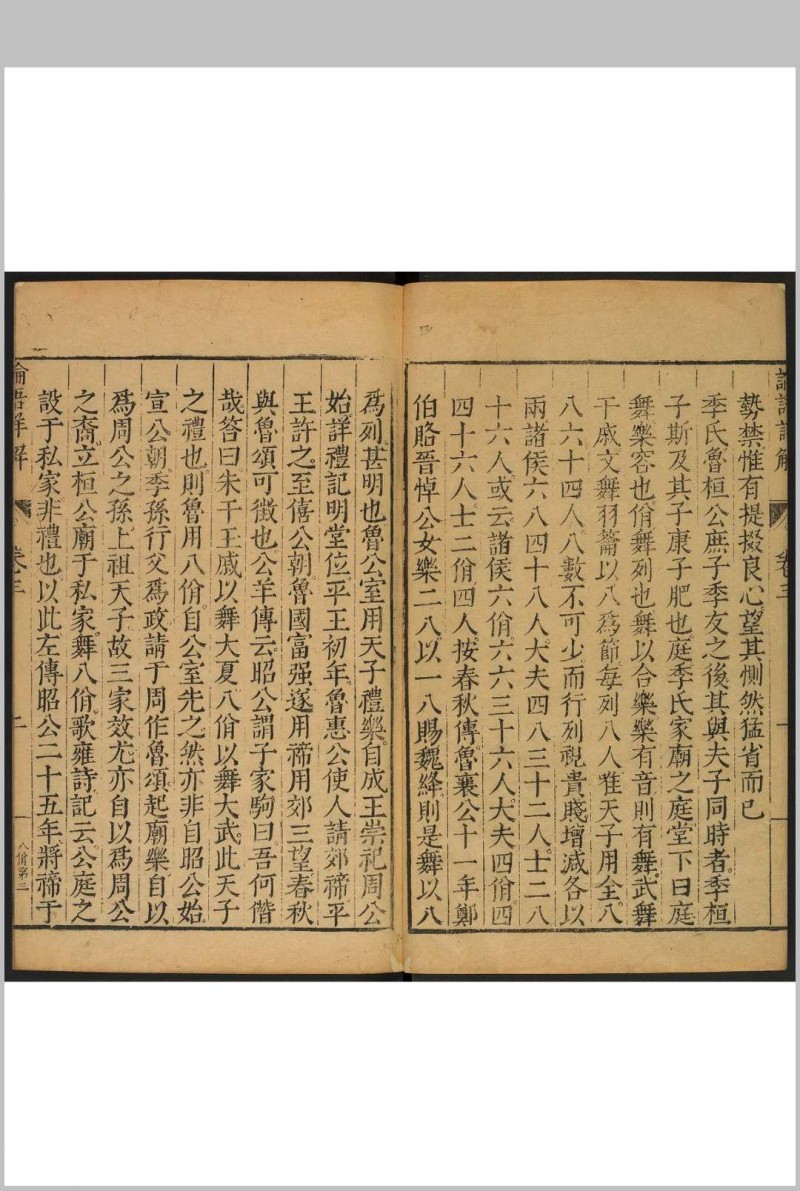 論語詳解
卷三
一
勢禁惟有提掇良心望其惻然猛省而已
季氏魯桓公庶子季友之後其與夫子同時者季桓
子斯及其子康子肥也庭季氏家廟之庭堂下曰庭
舞樂容也佾舞列也舞以合樂樂有音則有舞武舞
干戚文舞羽籥以八爲節每列八人惟天子用全八
八六十四人八數不可少而行列視貴賤增減各以
兩諸侯六八四十八人大夫四八三十二人士二八
十六人或云諸侯六佾六六三十六人大夫四佾四
四十六人士二佾四人按春秋傳魯襄公十一年鄭
伯賂晉悼公女樂二八以一八賜魏絳則是舞以八
爲列甚明也魯公室用天子禮樂自成王崇祀周公
始詳禮記明堂位平王初年魯惠公使人請郊禘平
王許之至僖公朝魯國富强遂用禘用郊三望春秋
與魯頌可徵也公羊傳云昭公謂子家駒曰吾何僭
哉答曰朱干玉戚以舞大夏八佾以舞大武此天子
之禮也則魯用八佾自公室先之然亦非自昭公始
宣公朝季孫行父爲政請于周作魯頌起廟樂自以
爲周公之孫上祖天子故三家效尤亦自以爲周公
之裔立桓公廟于私家舞八佾歌雍詩記云公庭之
設于私家非禮也以此左傳昭公二十五年將禘于
論語詳解
卷三
八佾第三